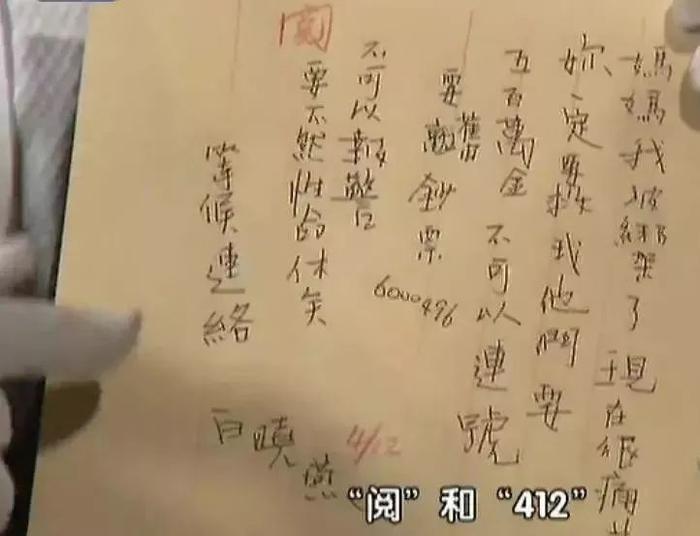 媽媽我被綁架了現在很痛
妳一定要救我他們要
五百萬金 不可以連號
要舊鈔票
6000496
不可以報警
閱
要不然性命休矣
等候連絡
白曉燕
4/12
“阅”和“412”